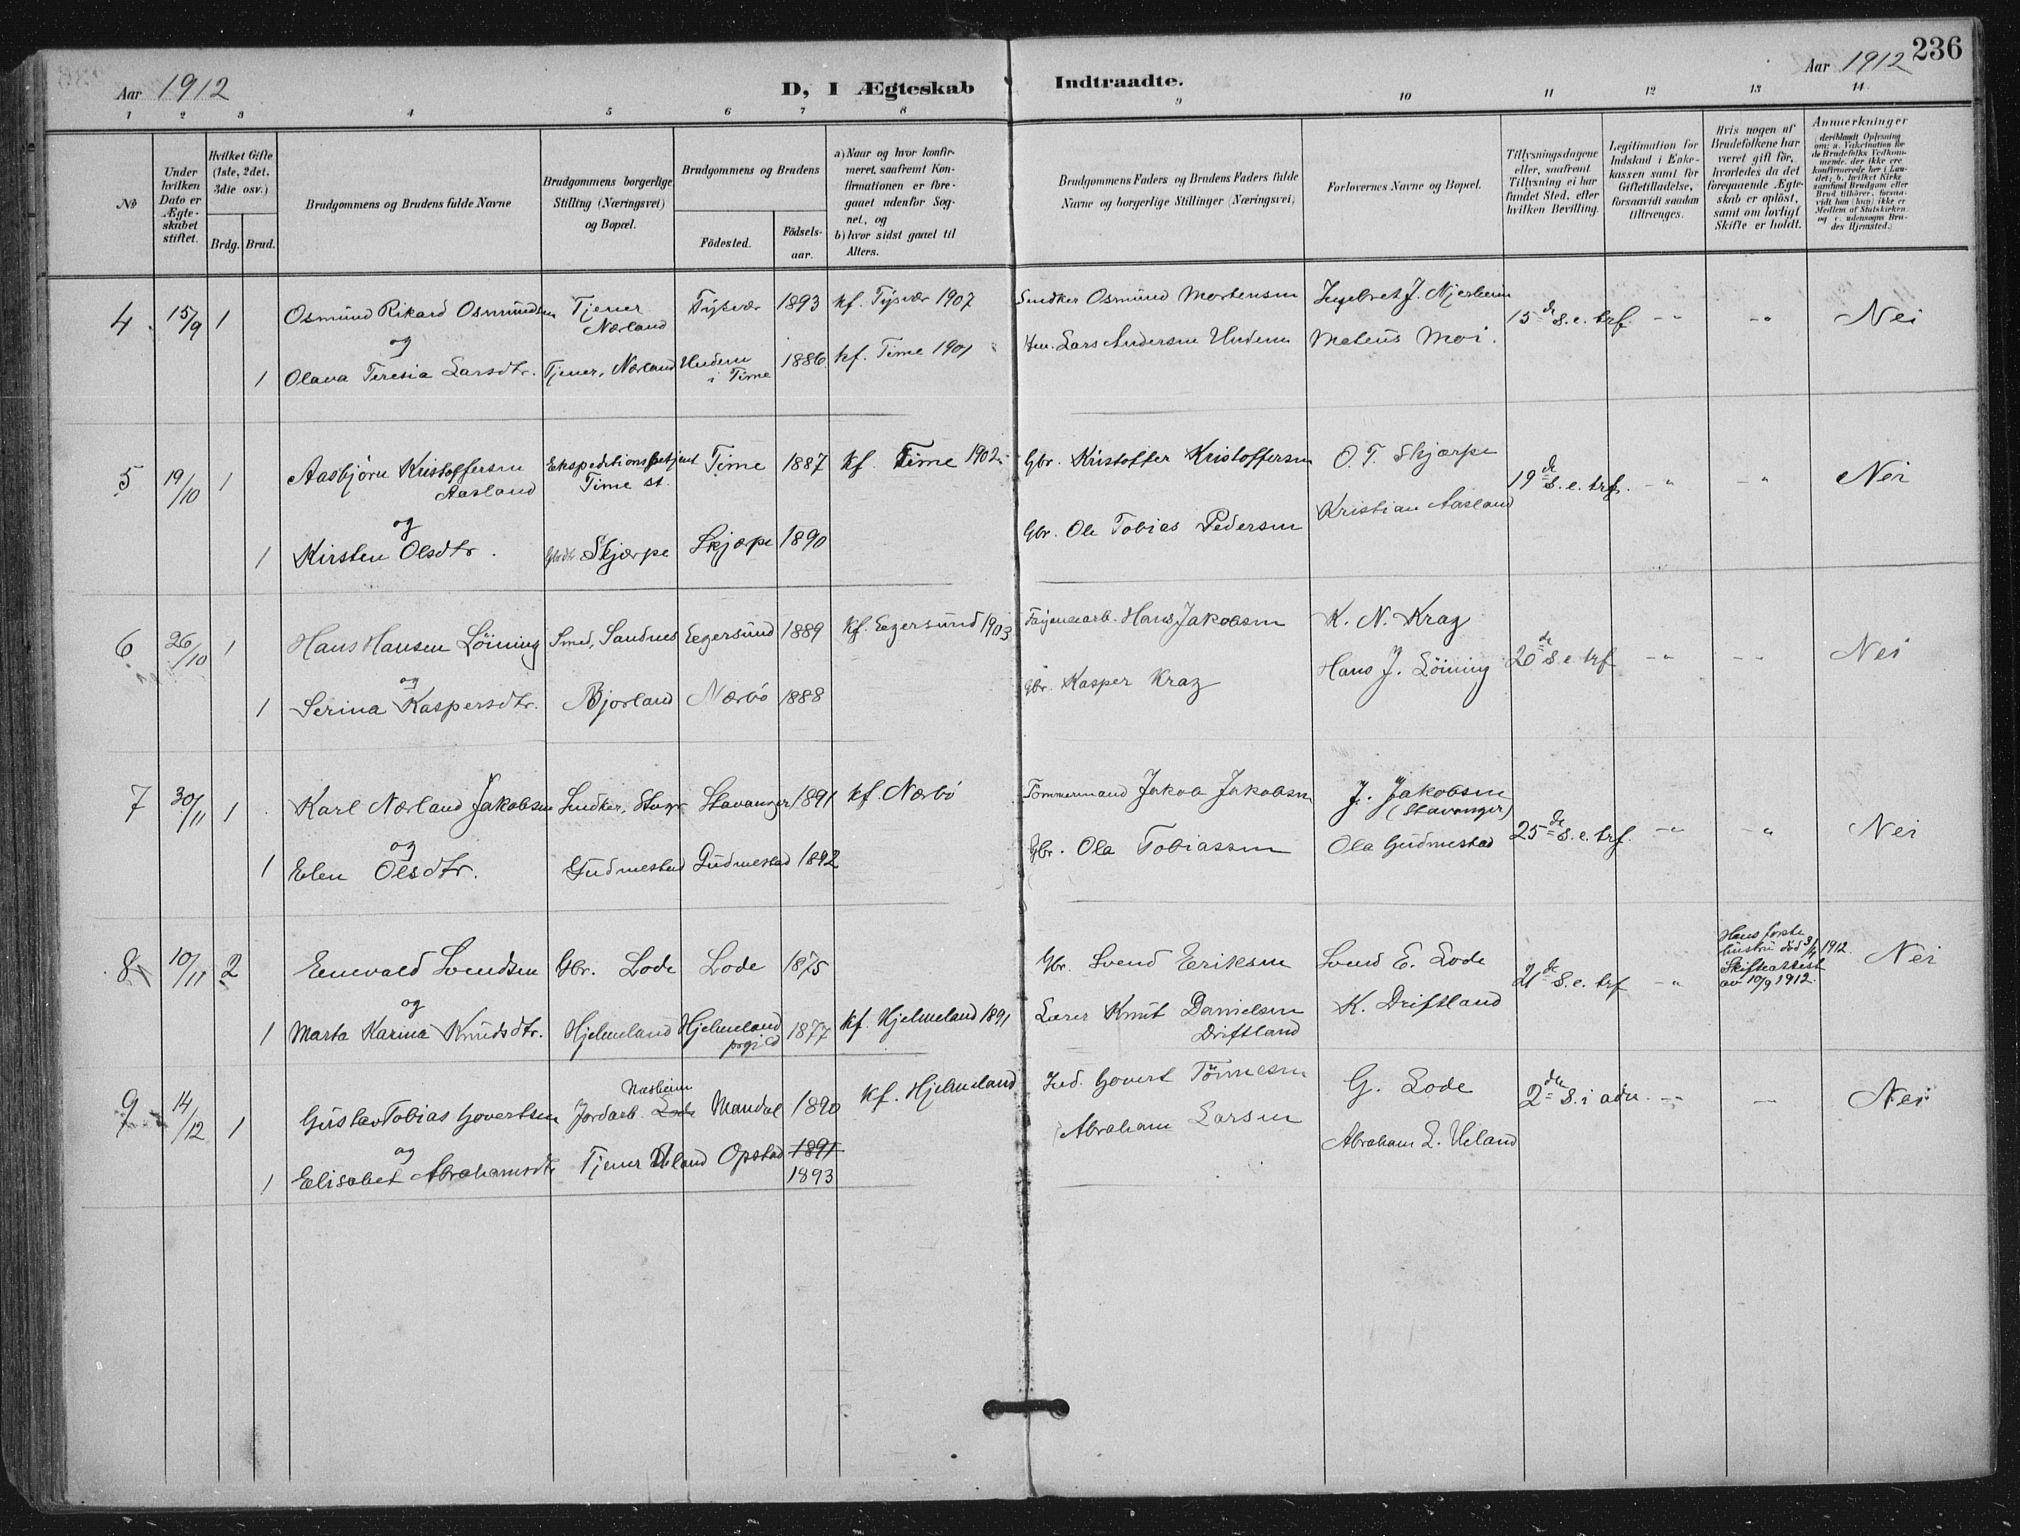 236
Aar 1912
D, I Ægteskab Indtraadte.
Aar 1912
1 2 3 4 5 6 7 8 9 10 11 12 13 14
No
Under hvilken Dato er Ægteskabet stiftet.
Hvilket Gifte (1ste, 2det, 3die osv.)
Brdg. Brud.
Brudgommens og Brudens fulde Navne
Brudgommens borgerlige Stilling (Næringsvei) og Bopæl.
Brudgommens og Brudens
Födested.
Födselsaar.
a) Naar og hvor konfirmeret, saafremt Konfirmationen er foregaaet udenfor Sognet, og
b) hvor sidst gaaet til Alters.
Brudgommens Faders og Brudens Faders fulde Navne og borgerlige Stillinger (Næringsvei)
Forlovernes Navne og Bopæl.
Tillysningsdagene eller, saafremt Tillysning ei har fundet Sted, efter hvilken Bevilling.
Legitimation for Indskud i Enkekassen samt for Giftetilladelse, forsaavidt saadan tiltrenges.
Hvis nogen af Brudefolkene har været gift för, hvorledes da det foregaaende Ægteskab er oplöst, samt om lovligt Skifte er holdt.
Anmerkninger
(deriblandt Oplysning om: a. Vakcination for de Brudefolks Vedkommende, der ikke ere konfirmerede her i Landet; b. hvilket Kirkesamfund Brudgom eller Brud tilhörer, forsaavidt han (hun) ikke er Medlem af Statskirken og c. udensogns Brudes Hjemsted.)
4 15/9 1 Osmund Rikard Osmundsen Tjener Nærland Tysvær 1893 kf. Tysvær 1907 Snedker Osmund Mortensen Ingebret J. Njerheim 15de s. e. trf. -"- -"- Nei
og
1 Olava Teresia Larsdtr. Tjener, Nærland Undem i Time 1886 kf. Time 1901 Lars Andersen Undem Mateus Moi.
5 19/10 1 Aasbjörn Kristoffersen Aasland Ekspeditionsbetjent Time st. Time 1887 kf. Time 1902 Gbr. Kristoffer Kristoffersen O. T. Skjærpe 19de s. e. trf. -"- -"- Nei
og
1 Kirsten Olsdtr. Gbrdtr Skjærpe Skjærpe 1890 Gbr. Ole Tobias Pedersen Kristian Aasland
6 26/10 1 Hans Hansen Löining Smed, Sandnes Eegersund 1889 kf. Eegersund 1903 Fajancearb. Hans Jakobsen K. N. Krag 20de s. e. trf -"- -"- Nei
og
1 Serina Kaspersdtr. Bjorland Nærbö 1888 Gbr. Kasper Krag Hans J. Löining
7 30/11 1 Karl Nærland Jakobsen Snedker, Stvgr Stavanger 1891 kf. Nærbö Tömmermand Jakob Jakobsen J. Jakobsen (Stavanger) 25de s. e. trf. -"- -"- Nei
og
1 Elen Olsdtr. Gudmestad Gudmestad 1892 Gbr. Ola Tobiassen Ola Gudmestad
8 10/11 2 Enevald Svendsen Gbr. Lode Lode 1875 Gbr. Svend Eriksen Svend E. Lode 21de s. e. trf -"- Hans förste hustru död 3/4 1912. Skifteattest av 10/9 1912. Nei
og
1 Marta Karina Knudsdtr. Hjelmeland Hjelmeland prgjeld 1877 kf. Hjelmeland 1891 Lærer Knut Danielsen Driftland K. Driftland
9 14/12 1 Gustav Tobias Govertsen Jordarb. Lode Næsheim Mandal 1890 kf. Hjelmeland Ind. Govert Tönnesen G. Lode 2den s. i adv. -"- -"- Nei
og
1 Elisabet Abrahamsdtr Tjener Ueland Opstad 1891 1893 Abraham Larsen Abraham L. Ueland